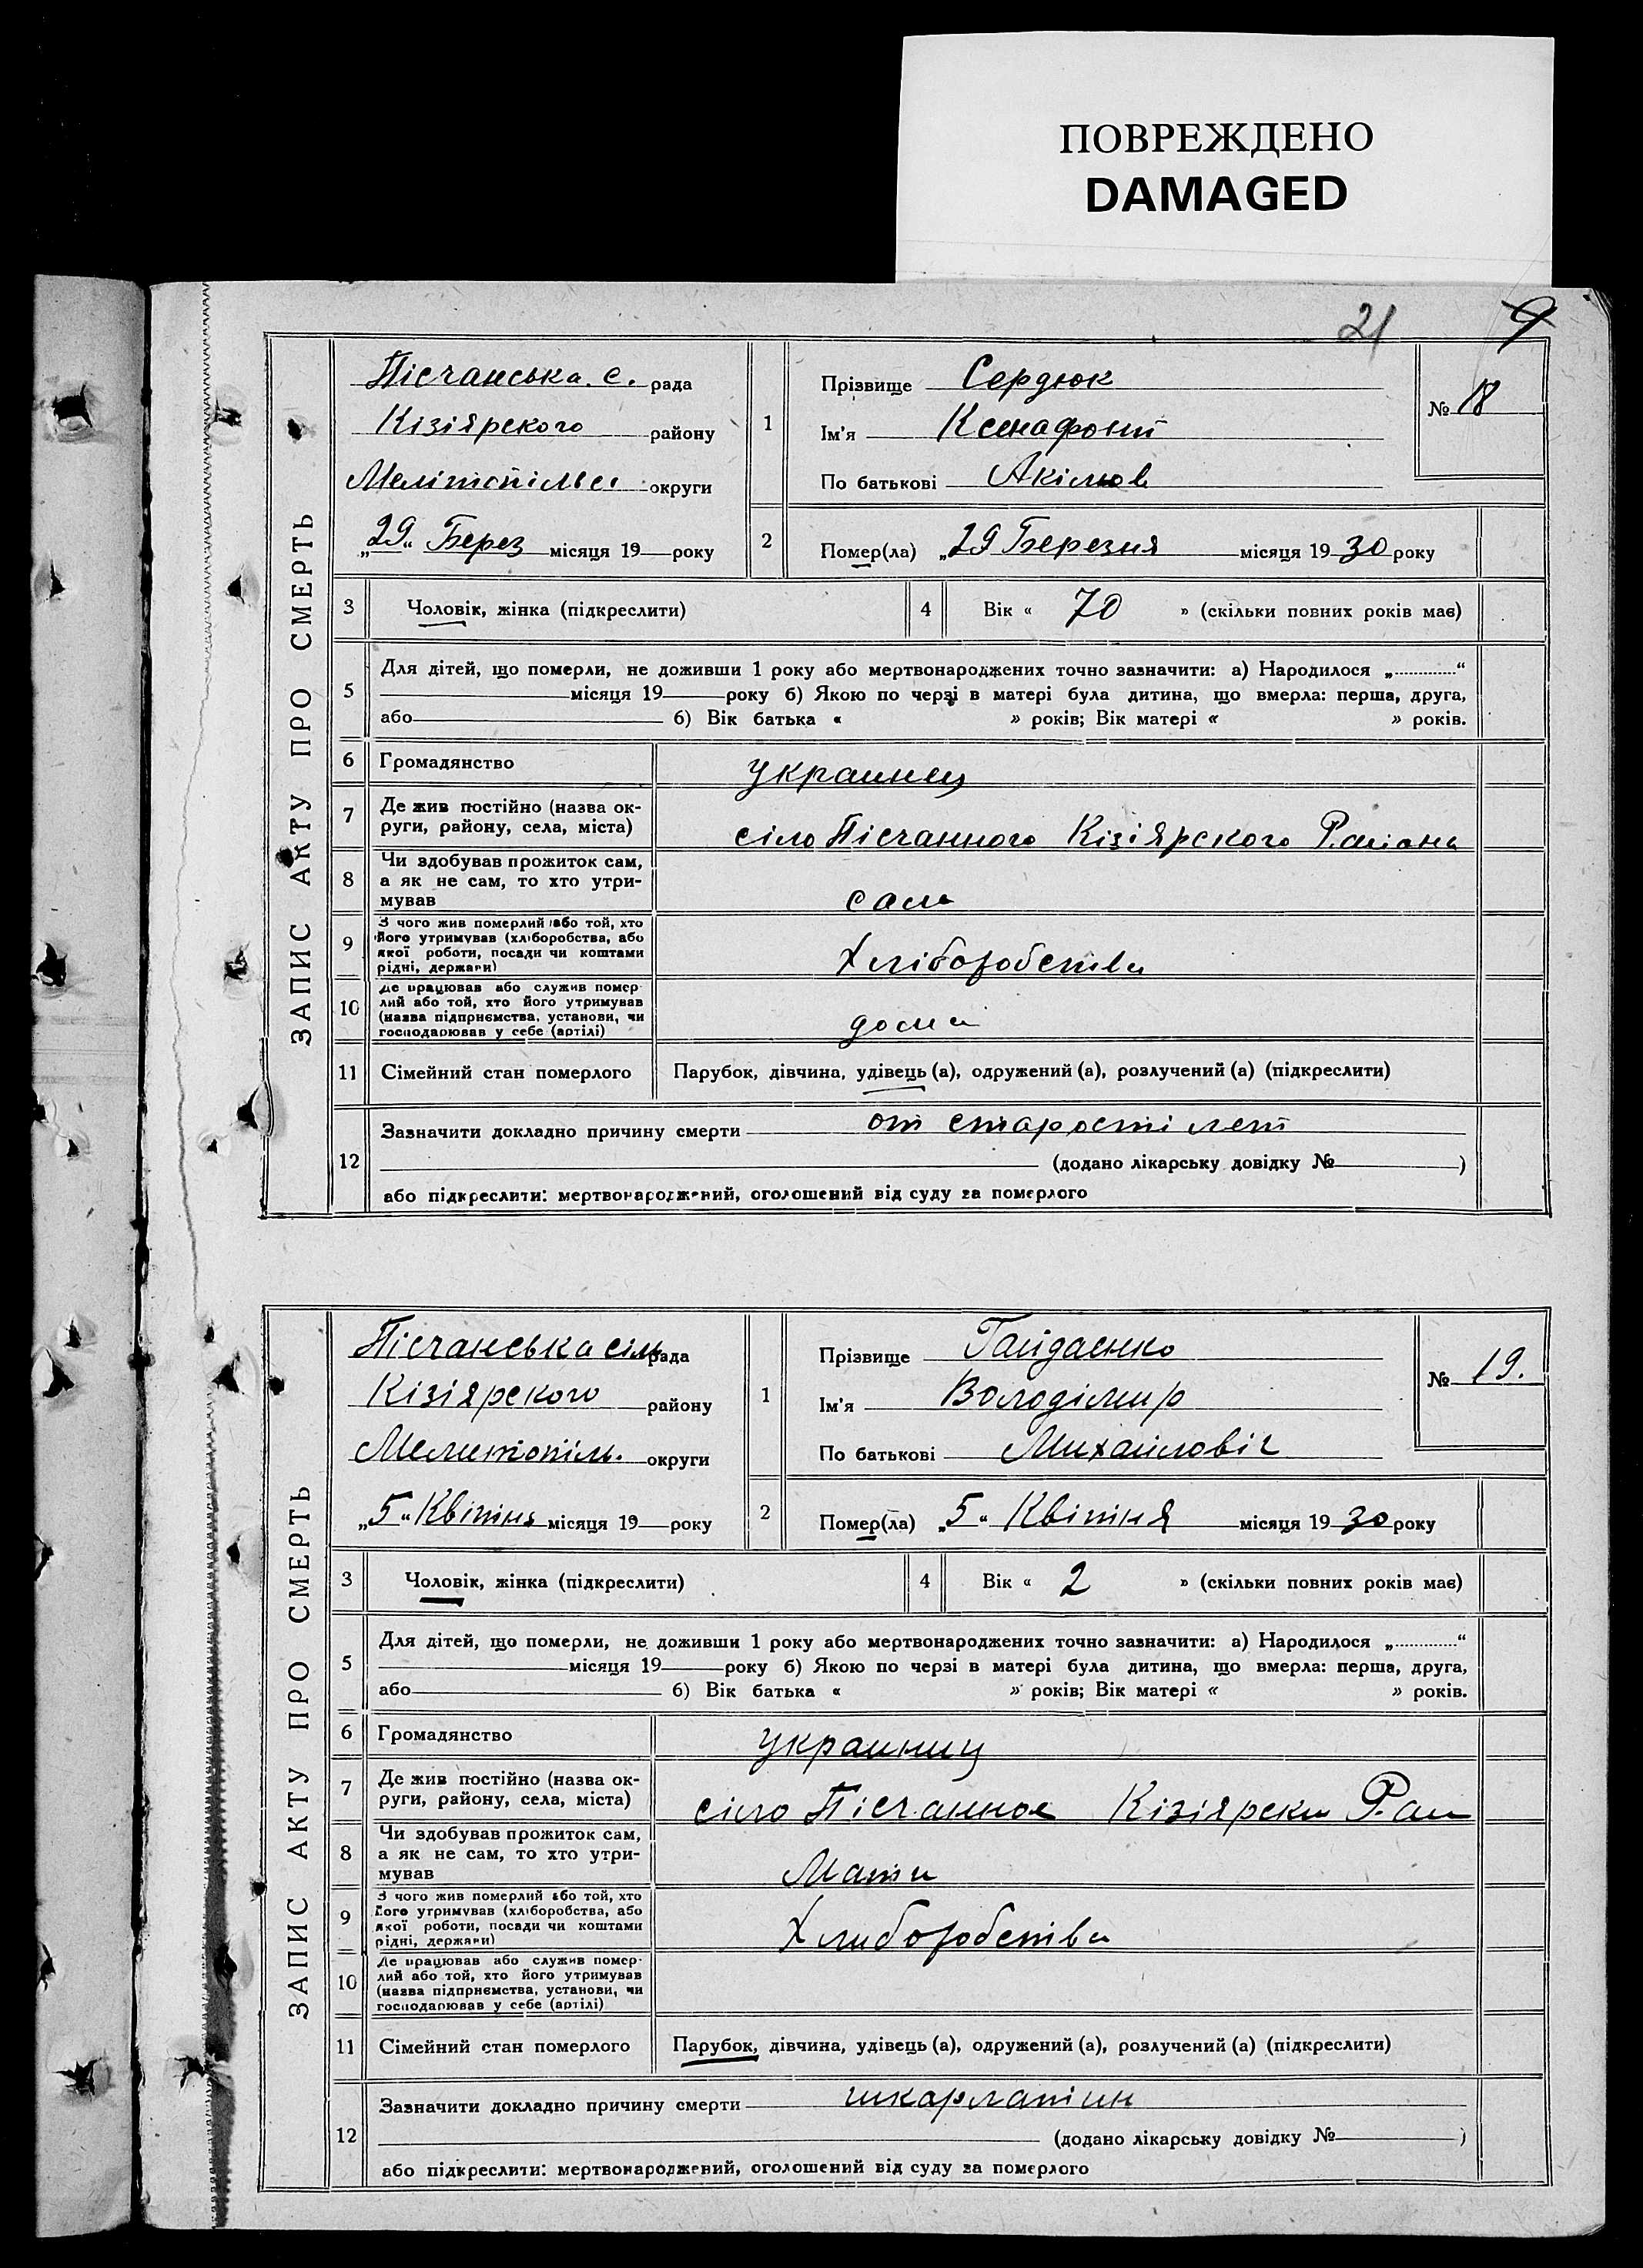 ПОВРЕЖДЕНО
DAMAGED
21
9
ЗАПИС АКТУ ПРО СМЕРТЬ
Пісчанська. с. рада
Кізіярского району
Мелітопільсі округи
„29“ Берез місяця 19 року
1
Прізвище Сердюк
Ім'я Ксенафонт
По батькові Акімов
№ 18
2
Помер(ла) „29 Березня місяця 1930 року
3 Чоловік, жінка (підкреслити)
4 Вік « 70 » (скільки повних років має)
5
Для дітей, що померли, не доживши 1 року або мертвонароджених точно зазначити: а) Народилося „............“
місяця 19 року б) Якою по черзі в матері була дитина, що вмерла: перша, друга,
або б) Вік батька « » років; Вік матері « » років.
6 Громадянство украинец
7 Де жив постійно (назва ок-
руги, району, села, міста) сіло Пісчанного Кізіярского Раіона
8 Чи здобував прожиток сам,
а як не сам, то хто утри-
мував сам
9 З чого жив померлий або той, хто
його утримував (хліборобства, або
якої роботи, посади чи коштами
рідні, держави) Хліборобства
10 Де працював або служив помер-
лий або той, хто його утримував
(назва підприємства, установи, чи
господарював у себе (артілі) дома
11 Сімейний стан померлого Парубок, дівчина, удівець (а), одружений (а), розлучений (а) (підкреслити)
12 Зазначити докладно причину смерти от старості лет
(додано лікарську довідку № )
або підкреслити: мертвонароджений, оголошений від суду за померлого
ЗАПИС АКТУ ПРО СМЕРТЬ
Пісчанська сіль рада
Кізіярского району
Мелитопіль. округи
„5“ Квітня місяця 19 року
1
Прізвище Гайдаенко
Ім'я Володімир
По батькові Михайловіч
№ 19.
2
Помер(ла) „5“ Квітня місяця 1930 року
3 Чоловік, жінка (підкреслити)
4 Вік « 2 » (скільки повних років має)
5
Для дітей, що померли, не доживши 1 року або мертвонароджених точно зазначити: а) Народилося „............“
місяця 19 року б) Якою по черзі в матері була дитина, що вмерла: перша, друга,
або б) Вік батька « » років; Вік матері « » років.
6 Громадянство украиниц
7 Де жив постійно (назва ок-
руги, району, села, міста) сіло Пісчанное Кізіярски Раи
8 Чи здобував прожиток сам,
а як не сам, то хто утри-
мував Мати
9 З чого жив померлий або той, хто
його утримував (хліборобства, або
якої роботи, посади чи коштами
рідні, держави) Хлиборобства
10 Де працював або служив помер-
лий або той, хто його утримував
(назва підприємства, установи, чи
господарював у себе (артілі)
11 Сімейний стан померлого Парубок, дівчина, удівець (а), одружений (а), розлучений (а) (підкреслити)
12 Зазначити докладно причину смерти шкарлатин
(додано лікарську довідку № )
або підкреслити: мертвонароджений, оголошений від суду за померлого